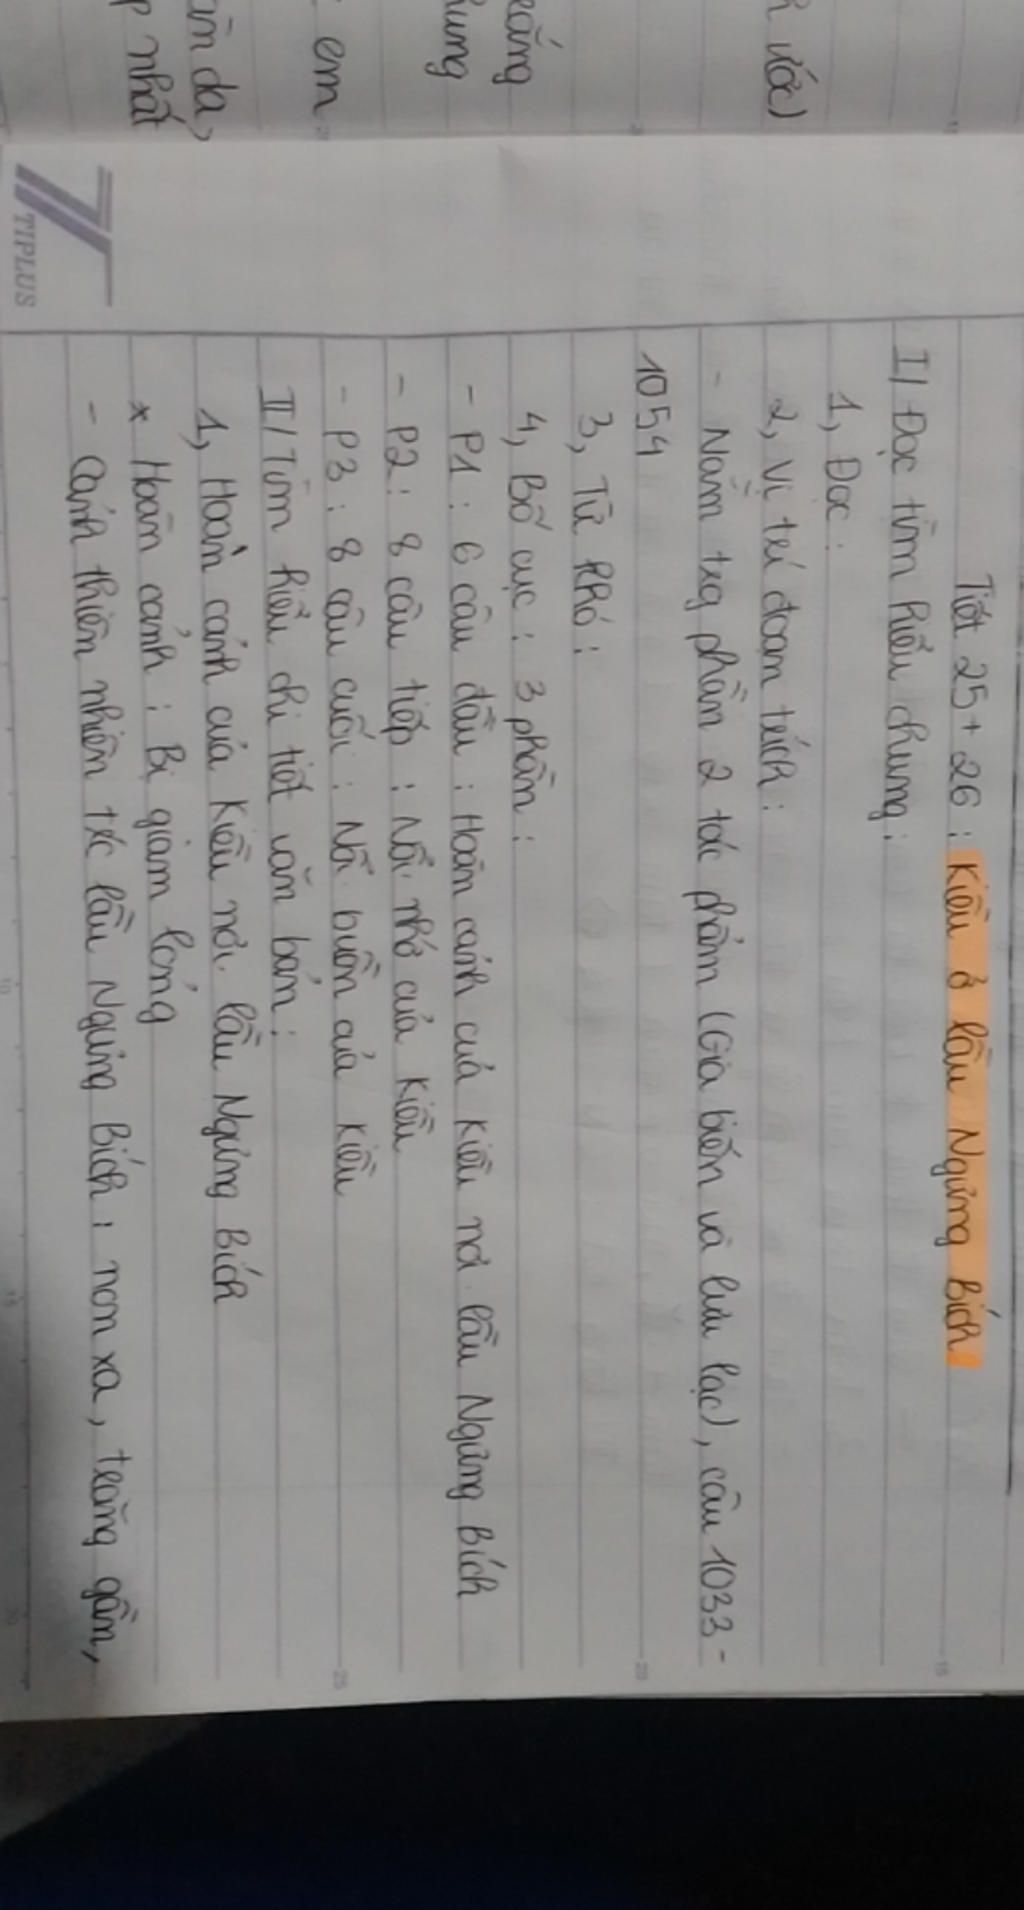 Tiết 25+26: Kiều ở lầu Ngưng Bích
I/ Đọc tìm hiểu chung:
1, Đọc:
2, Vị trí đoạn trích:
- Nằm trg phần 2 tác phẩm (Gia biến và lưu lạc), câu 1033-
1054
3, Từ khó:
4, Bố cục: 3 phần:
- P1: 6 câu đầu: Hoàn cảnh của Kiều nơi lầu Ngưng Bích
- P2: 8 câu tiếp: Nỗi nhớ của Kiều
- P3: 8 câu cuối: Nỗi buồn của Kiều
II/ Tìm hiểu chi tiết văn bản:
1, Hoàn cảnh của Kiều nơi lầu Ngưng Bích
* Hoàn cảnh: Bị giam lỏng
- Cảnh thiên nhiên trc lầu Ngưng Bích: non xa, trăng gần,
ước)
hung
em
da,
nhất
TIPLUS